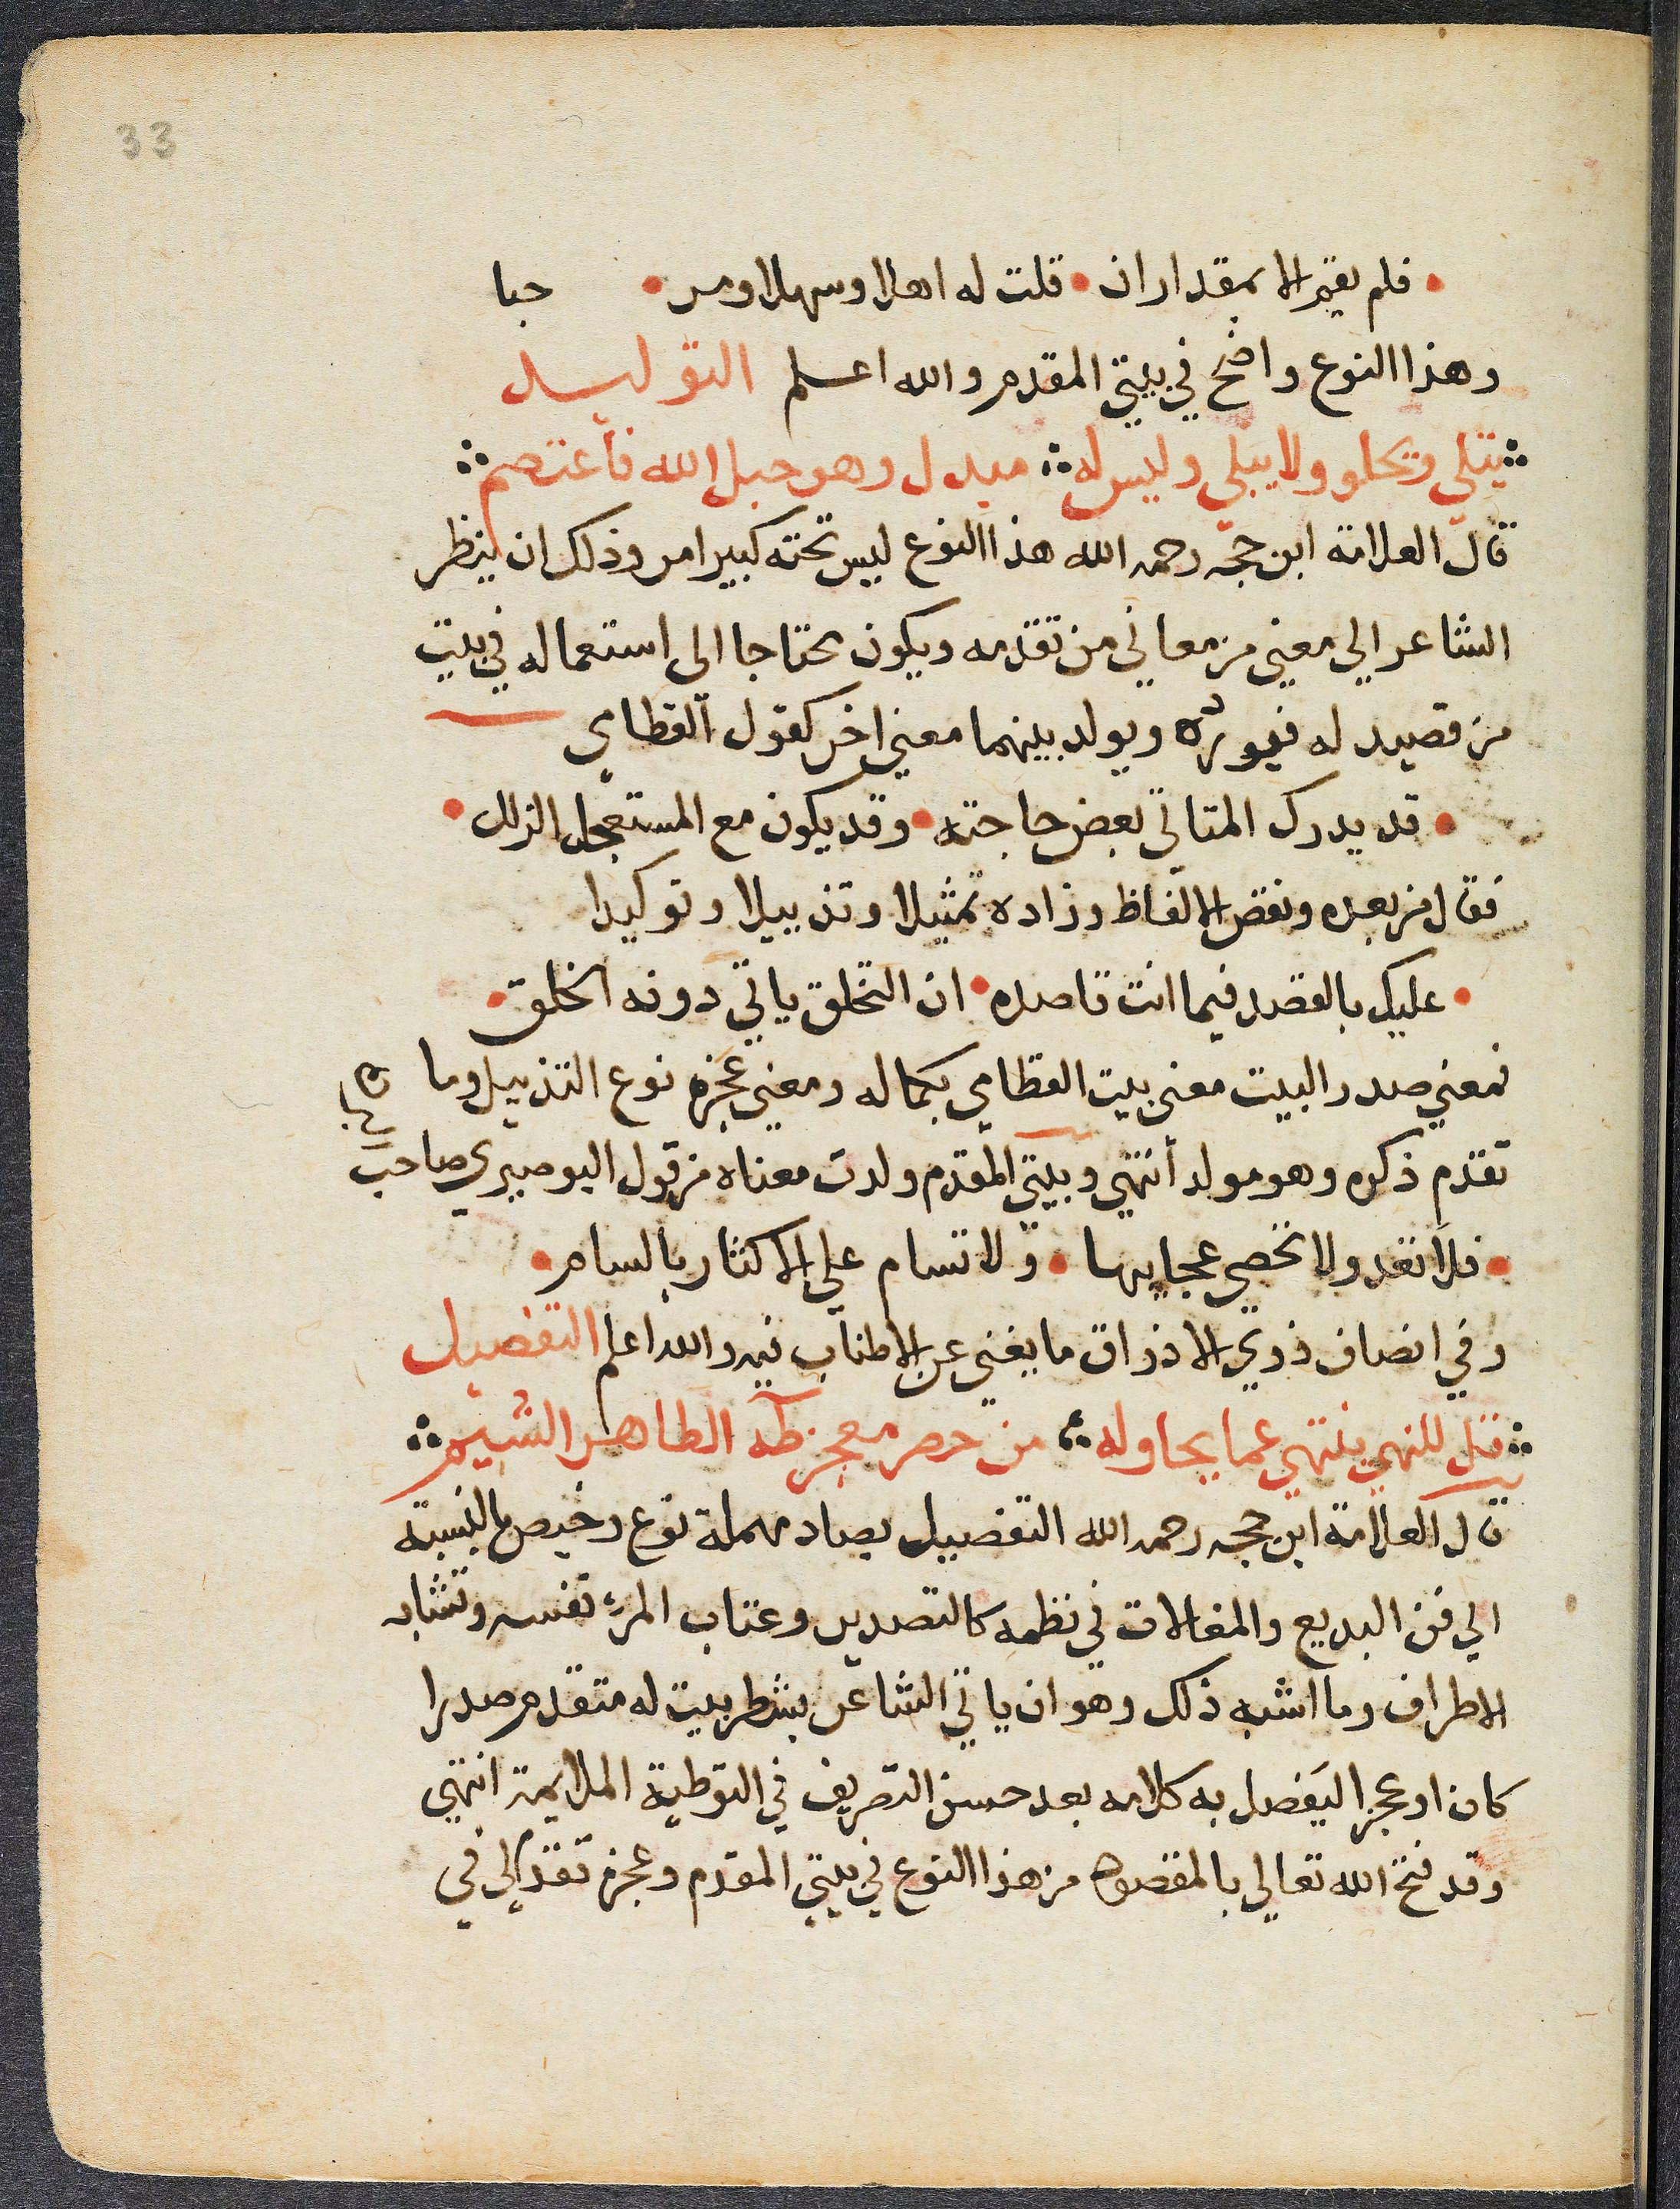 33
• فلم يقم الا بمقدار ان • قلت له اهلا وسهلا ومر • حبا
وهذا النوع واضح في بيتي المقدم والله اعلم التوليد
يتلي ويحلو ولا يبلي وليس له مبدل وهو حبل الله فاعتصم
قال العلامة ابن حجه رحمه الله هذا النوع ليس تحته كبير امر وذلك ان ينظر
الشاعر الي معني من معاني من تقدمه ويكون محتاجا الى استعماله في بيت
من قصيد له فيورده ويولد بينهما معني اخر كقول القطامي
• قد يدرك المتاني بعض حاجته • وقد يكون مع المستعجل الزلل •
فقال من بعده ونقص الالفاظ وزاده تمثيلا وتذييلا وتوكيدا
• عليك بالقصد فيما انت قاصده • ان التخلق ياتي دونه الخلق •
فمعني صدر البيت معنى بيت القطامي بكماله ومعني عجزه نوع التذييل وما
تقدم ذكره وهو مولد أنتهي وبيتي المقدم ولدت معناه من قول البوصيري صاحب
• فلا تعد ولا تحصي عجايبها • ولا تسام علي الاكثار بالسام •
وفي انصاف ذوي الاذواق ما يغني عن الاطناب فيه والله اعلم التفصيل
قتل للنهي ينتهي عما يحاوله من حصر معجز طه الطاهر الشيم
قال العلامة ابن حجه رحمه الله التفصيل بصاد مهملة نوع رخيص بالنسبة
الي فن البديع والمغالات في نظمه كالتصدير وعتاب المرء نفسه وتشابه
الاطراف وما اشبه ذلك وهو ان ياتي الشاعر بشطر بيت له متقدم صدرا
كان او عجزا ليفصل به كلامه بعد حسن التصريف في التوطية الملايمة انتهي
وقد فتح الله تعالي بالمقصود من هذا النوع في بيتي المقدم وعجزه تقدم لي في